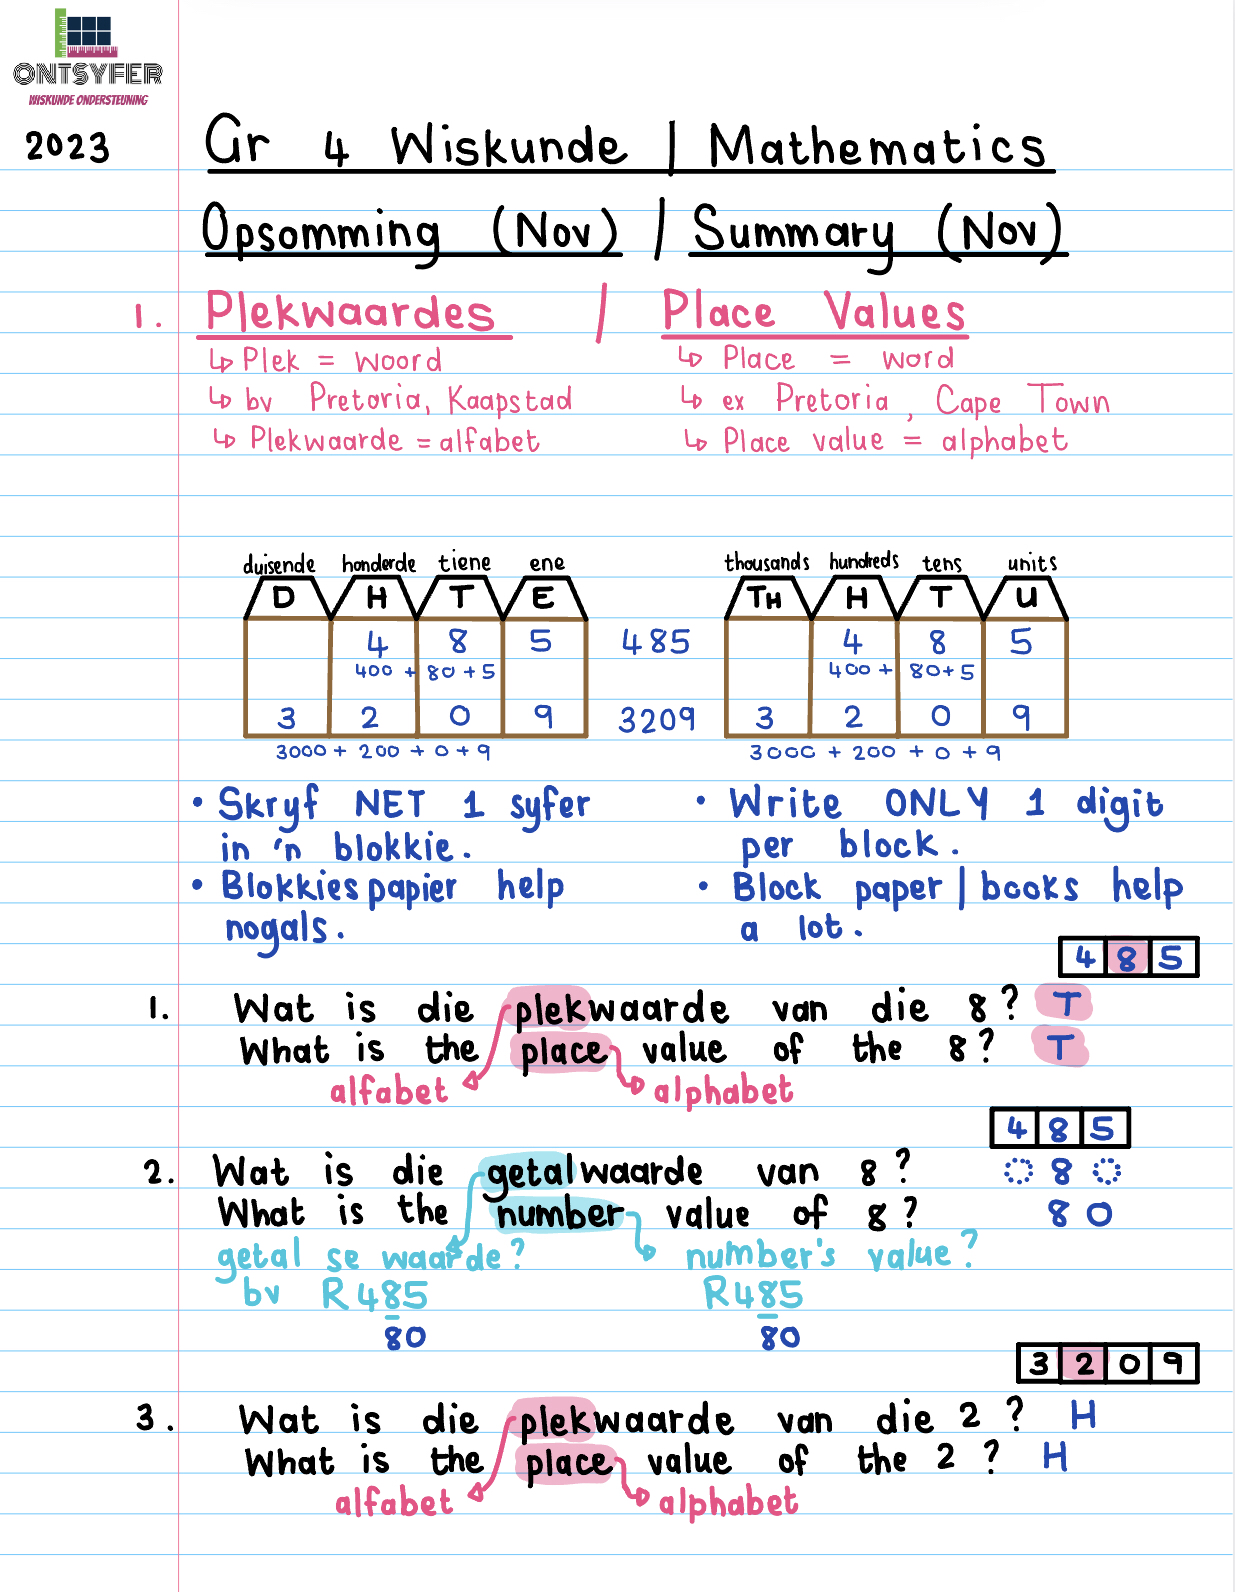 ONTSYFER
WISKUNDE ONDERSTEUNING
2023
Gr 4 Wiskunde | Mathematics
Opsomming (Nov) / Summary (Nov)
1. Plekwaardes / Place Values
↳ Plek = woord ↳ Place = word
↳ bv Pretoria, Kaapstad ↳ ex Pretoria, Cape Town
↳ Plekwaarde = alfabet ↳ Place value = alphabet
duisende honderde tiene ene thousands hundreds tens units
D H T E TH H T U
4 8 5 485 4 8 5
400 + 80 + 5 400 + 80+5
3 2 0 9 3209 3 2 0 9
3000 + 200 + 0 + 9 3000 + 200 + 0 + 9
• Skryf NET 1 syfer • Write ONLY 1 digit
in 'n blokkie. per block.
• Blokkiespapier help • Block paper | books help
nogals. a lot.
4 8 5
1. Wat is die plekwaarde van die 8? T
What is the place value of the 8? T
alfabet alphabet
4 8 5
2. Wat is die getalwaarde van 8? 8
What is the number value of 8? 80
getal se waarde? number's value?
bv R485 R485
80 80
3 2 0 9
3. Wat is die plekwaarde van die 2? H
What is the place value of the 2? H
alfabet alphabet